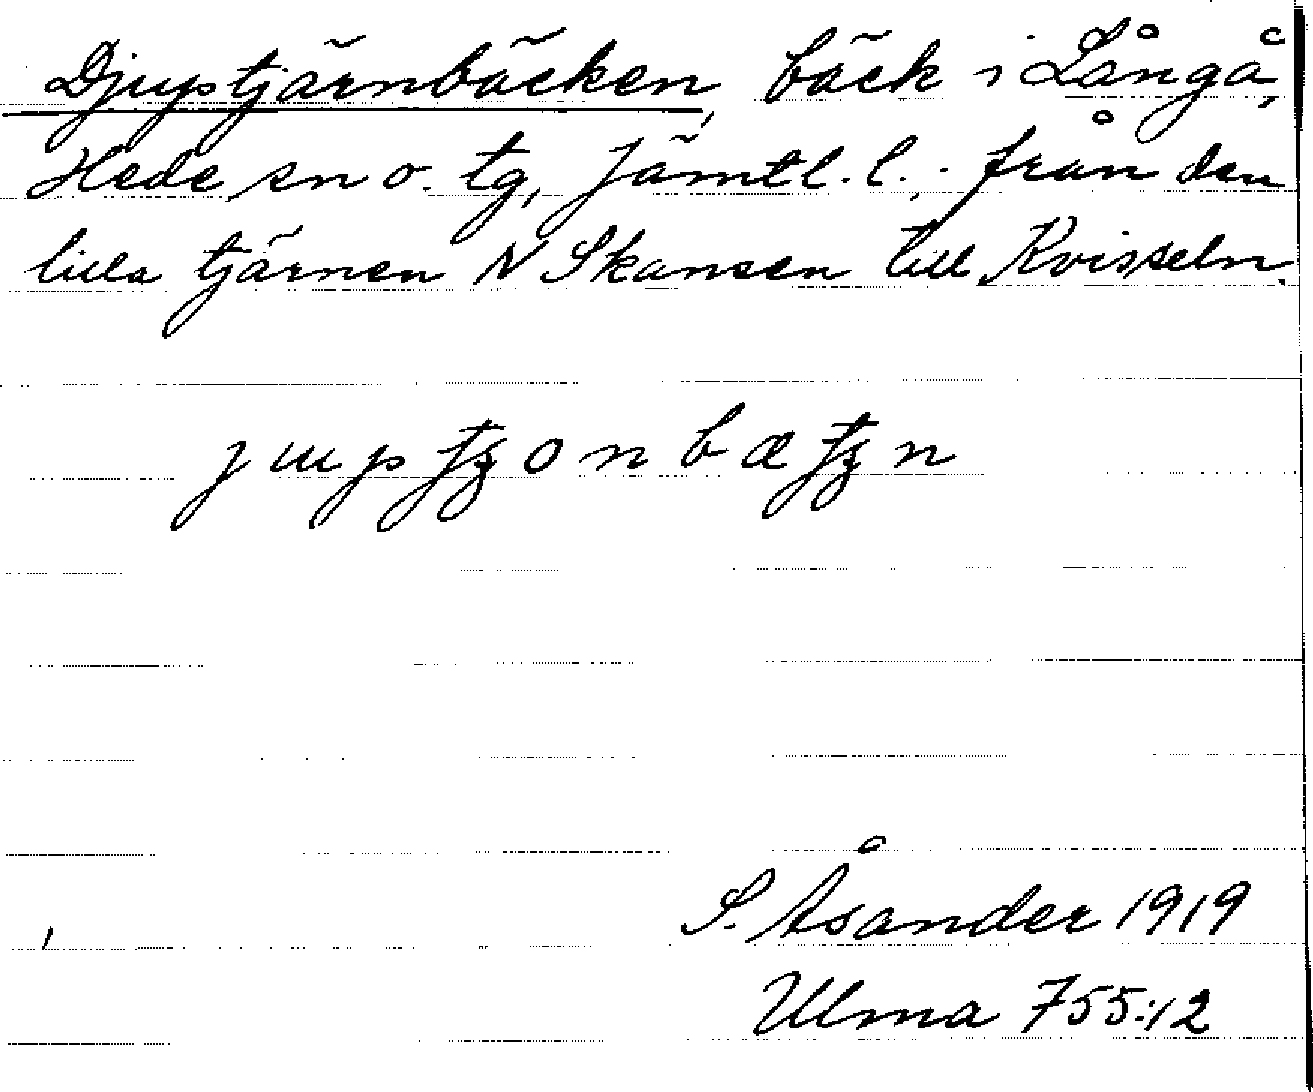 Djuptjärnbäcken, bäck i Långå,
Hede sn o. tg, Jämtl. l. . från den
lilla tjärnen N Skansen till Kvisseln.
S. Åsander 1919
Ulma 755:12